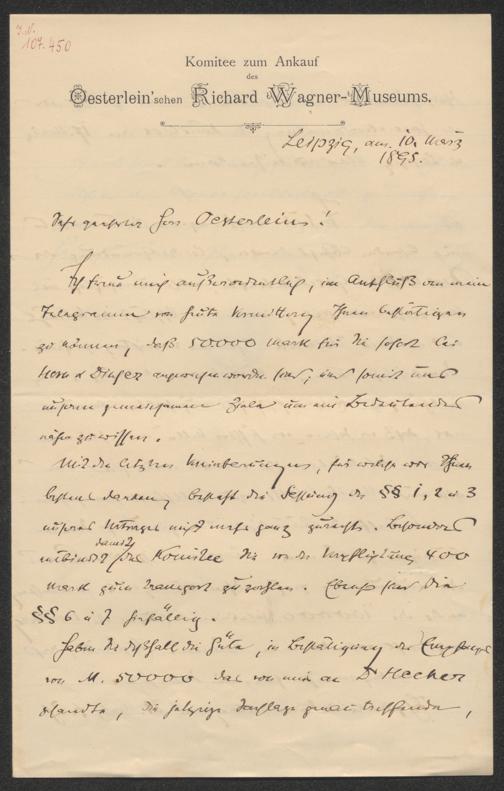 I.N.
107.450
Komitee zum Ankauf
des
Oesterlein'schen Richard Wagner-Museums.
Leipzig, am 10. März
1895.
Sehr geehrter Herr Oesterlein!
Ich freue mich außerordentlich, im Anschluß an mein
Telegramm von heute Vormittag Ihnen bestätigen
zu können, daß 50000 Mark für Sie sofort bei
Horn & Dinger angewiesen worden sind, und somit uns
unserem gemeinsamen Ziele um ein Bedeutendes
näher zu wissen.
Mit den letzten Vereinbarungen, für welche wir Ihnen
bestens danken, besteht die Fassung der §§ 1, 2 u 3
unseres Vertrages nicht mehr ganz zurecht. Besonders
entbindet damit das Komitee Sie von der Verpflichtung 400
Mark zum Transport zu zahlen. Ebenso sind die
§§ 6 u 7 hinfällig.
Haben Sie deßhalb die Güte, in Bestätigung des Empfanges
von M. 50000 das von mir an Dr Hecker
gesandte, die jetzige Sachlage genau treffende,